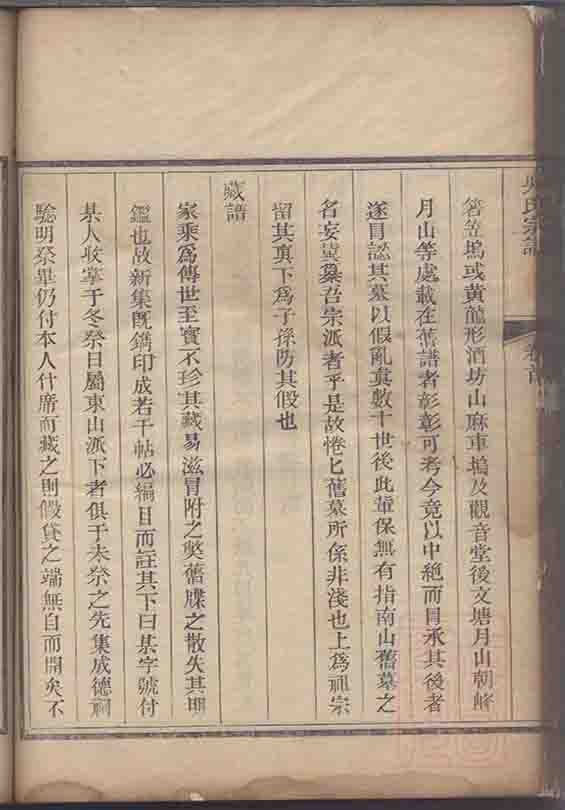 吳氏宗譜 卷首
箬笠塢或黃龍形酒坊山麻車塢及觀音堂後文塘月山朝峰
月山等處載在舊譜者彰彰可考今竟以中絕而冒承其後者
遂冒認其墓以假亂真數十世後此輩保無有指南山舊墓之
名妄冀纂吾宗派者乎是故惓匕舊墓所係非淺也上爲祖宗
留其真下爲子孫防其假也
藏譜
家乘爲傳世至寶不珍其藏易滋冒附之獘舊牒之散失其明
鑑也故新集旣鐫印成若干帖必編目而註其下曰某字號付
某人收掌于冬祭日屬東山派下者俱于未祭之先集成德祠
驗明祭畢仍付本人什席而藏之則假貸之端無自而開矣不